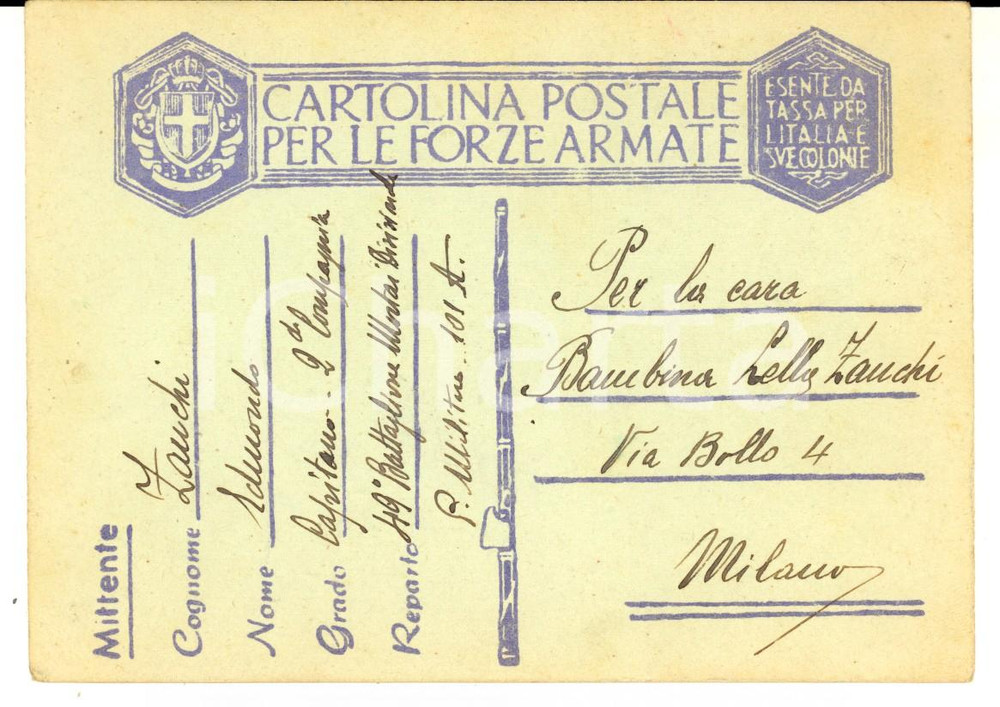 CARTOLINA POSTALE
PER LE FORZE ARMATE
ESENTE DA
TASSA PER
L'ITALIA E
SVE COLONIE
Mittente
Cognome Zanchi
Nome Edmondo
Grado Capitano - 2da Compagnia
Reparto 49° Battaglione Mortai Divisionale
P. Militare 101 A.
Per la cara
Bambina Lella Zanchi
Via Bollo 4
Milano
iCharta